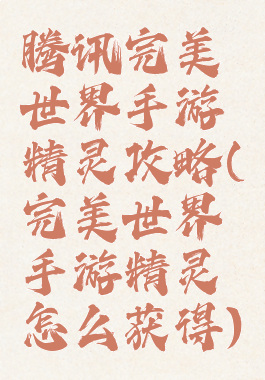 腾讯完美
世界手游
精灵攻略(
完美世界
手游精灵
怎么获得)